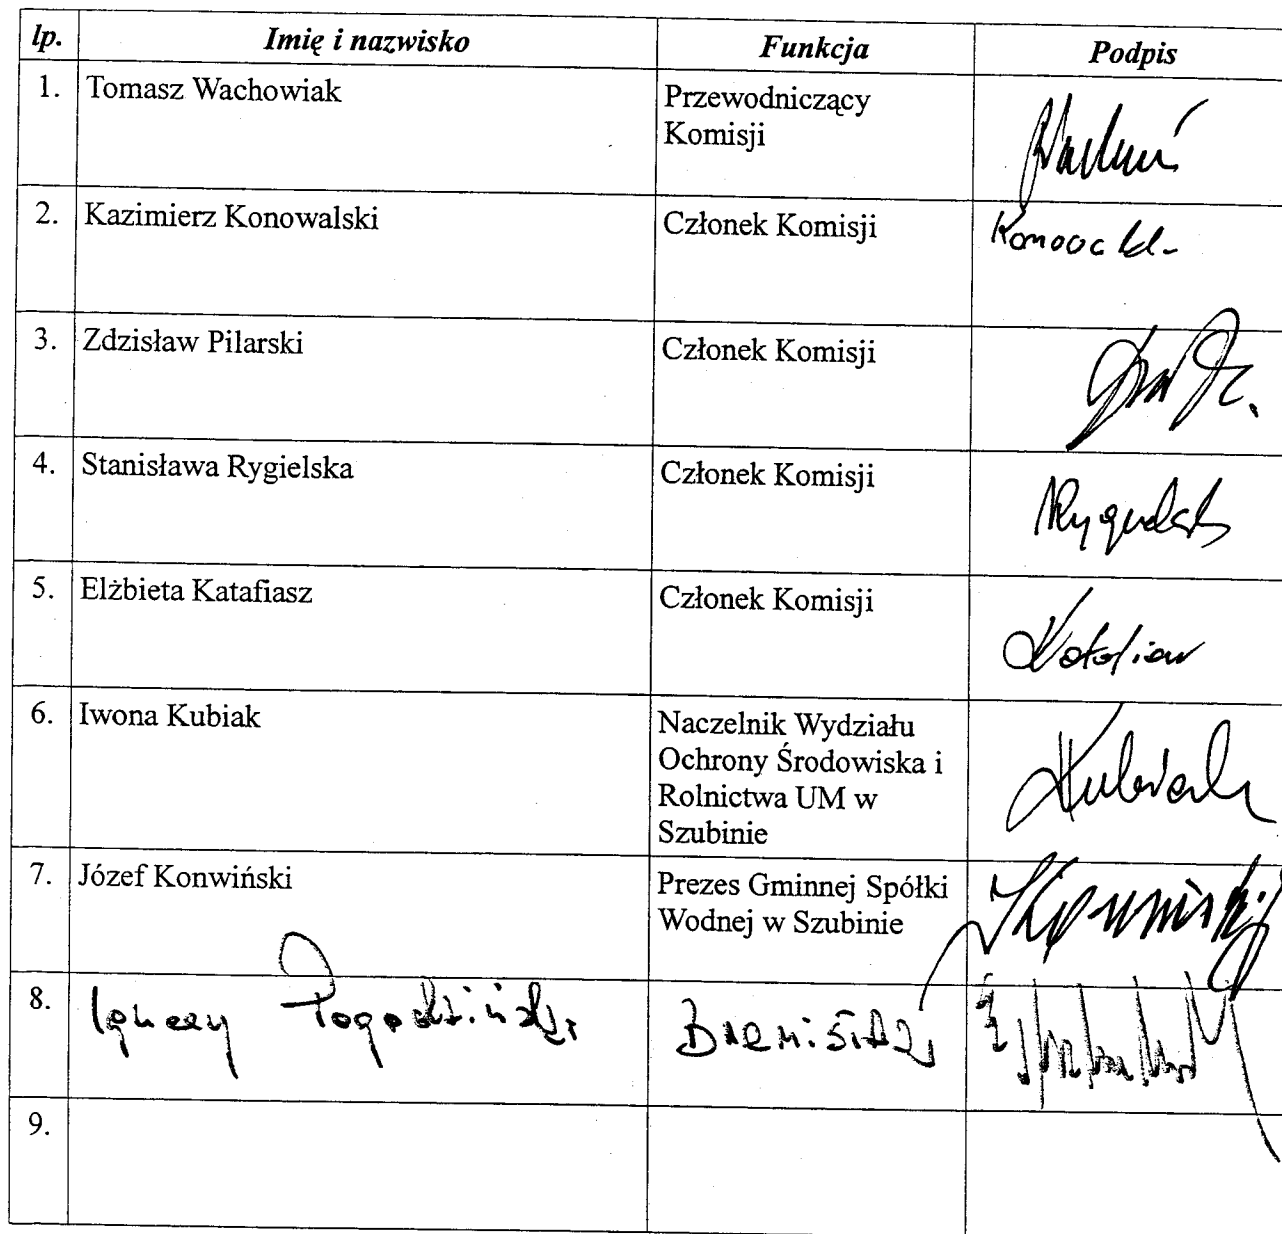 lp. Imię i nazwisko Funkcja Podpis
1. Tomasz Wachowiak Przewodniczący
Komisji
2. Kazimierz Konowalski Członek Komisji
3. Zdzisław Pilarski Członek Komisji
4. Stanisława Rygielska Członek Komisji
5. Elżbieta Katafiasz Członek Komisji
6. Iwona Kubiak Naczelnik Wydziału
Ochrony Środowiska i
Rolnictwa UM w
Szubinie
Kubiak
7. Józef Konwiński Prezes Gminnej Spółki
Wodnej w Szubinie
8. Ignacy Pogodziński Burmistrz
9.